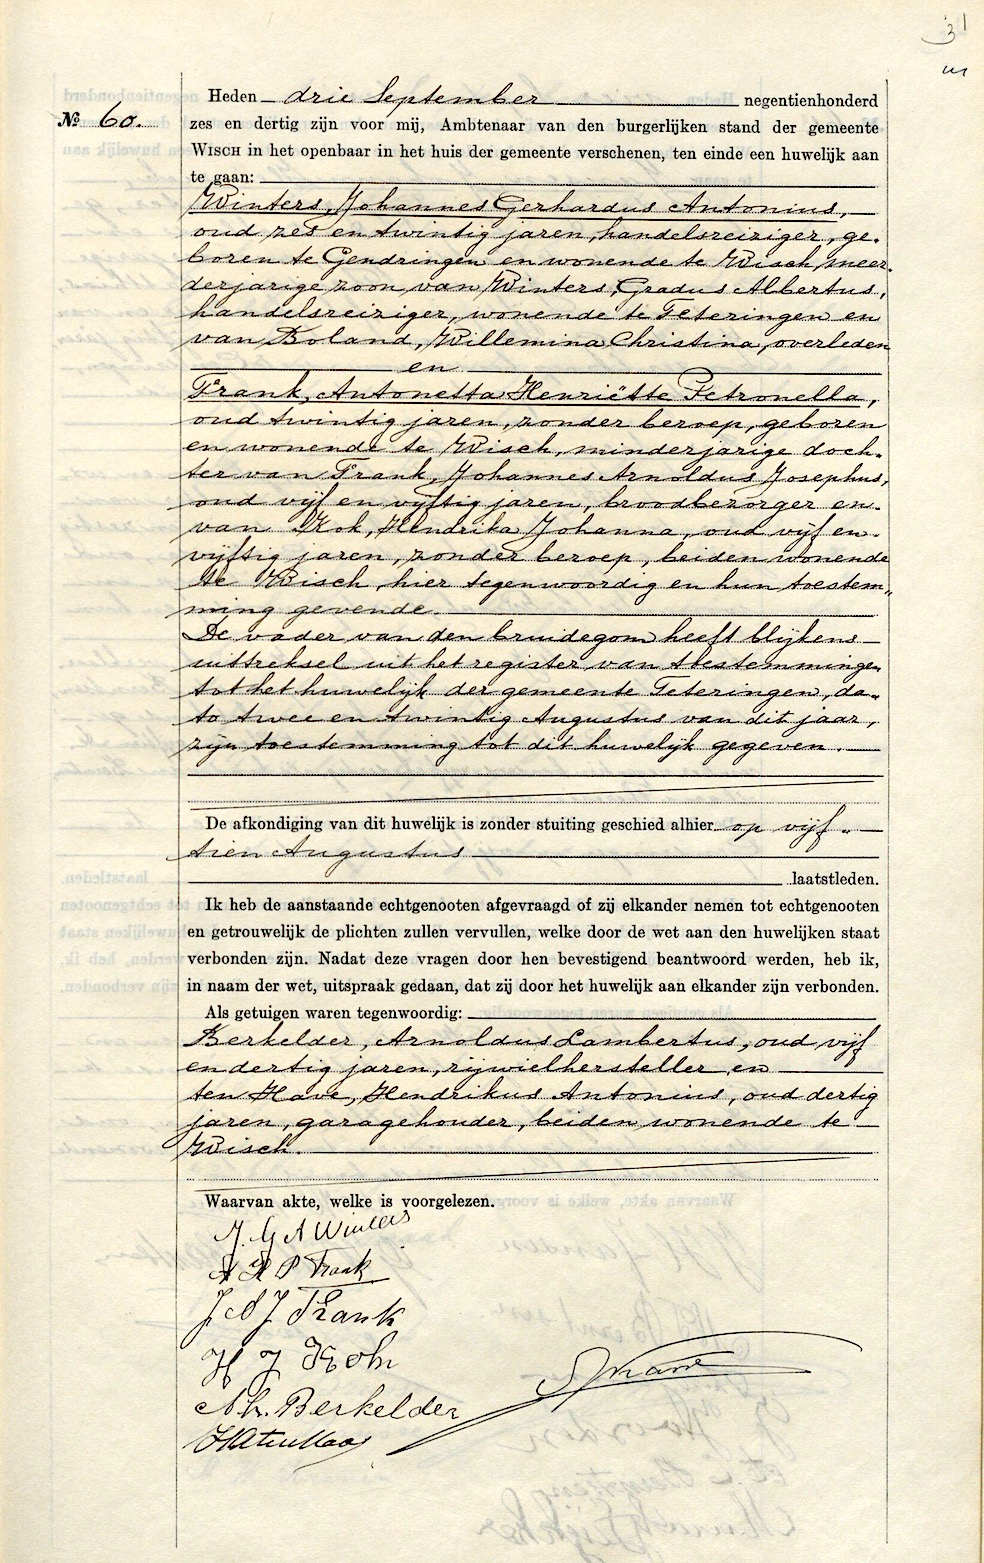 31
Heden drie September negentienhonderd
№ 60.
zes en dertig zijn voor mij, Ambtenaar van den burgerlijken stand der gemeente
WISCH in het openbaar in het huis der gemeente verschenen, ten einde een huwelijk aan
te gaan:
Winters, Johannes Gerhardus Antonius,
oud zes en twintig jaren, handelsreiziger, ge-
boren te Gendringen en wonende te Wisch, meer-
derjarige zoon van Winters, Gradus Albertus,
handelsreiziger, wonende te Teteringen en
van Boland, Willemina Christina, overleden
en
Frank, Antonetta Henriëtte Petronella,
oud twintig jaren, zonder beroep, geboren
en wonende te Wisch, minderjarige doch-
ter van Frank, Johannes Arnoldus Josephus,
oud vijf en vijftig jaren, broodbezorger en
van Kok, Hendrika Johanna, oud vijf en
vijftig jaren, zonder beroep, beiden wonende
te Wisch, hier tegenwoordig en hun toestem-
ming gevende.
De vader van den bruidegom heeft blijkens
uittreksel uit het register van toestemmingen
tot het huwelijk der gemeente Teteringen, da-
to twee en twintig Augustus van dit jaar,
zijn toestemming tot dit huwelijk gegeven.
De afkondiging van dit huwelijk is zonder stuiting geschied alhier op vijf-
tien Augustus
laatstleden.
Ik heb de aanstaande echtgenooten afgevraagd of zij elkander nemen tot echtgenooten
en getrouwelijk de plichten zullen vervullen, welke door de wet aan den huwelijken staat
verbonden zijn. Nadat deze vragen door hen bevestigend beantwoord werden, heb ik,
in naam der wet, uitspraak gedaan, dat zij door het huwelijk aan elkander zijn verbonden.
Als getuigen waren tegenwoordig:
Berkelder, Arnoldus Lambertus, oud vijf
en dertig jaren, rijwielhersteller en
ten Have, Hendrikus Antonius, oud dertig
jaren, garagehouder, beiden wonende te
Wisch.
Waarvan akte, welke is voorgelezen.
J. G A Winters
A H P Frank
J A J Frank
H J Kok
A. L. Berkelder